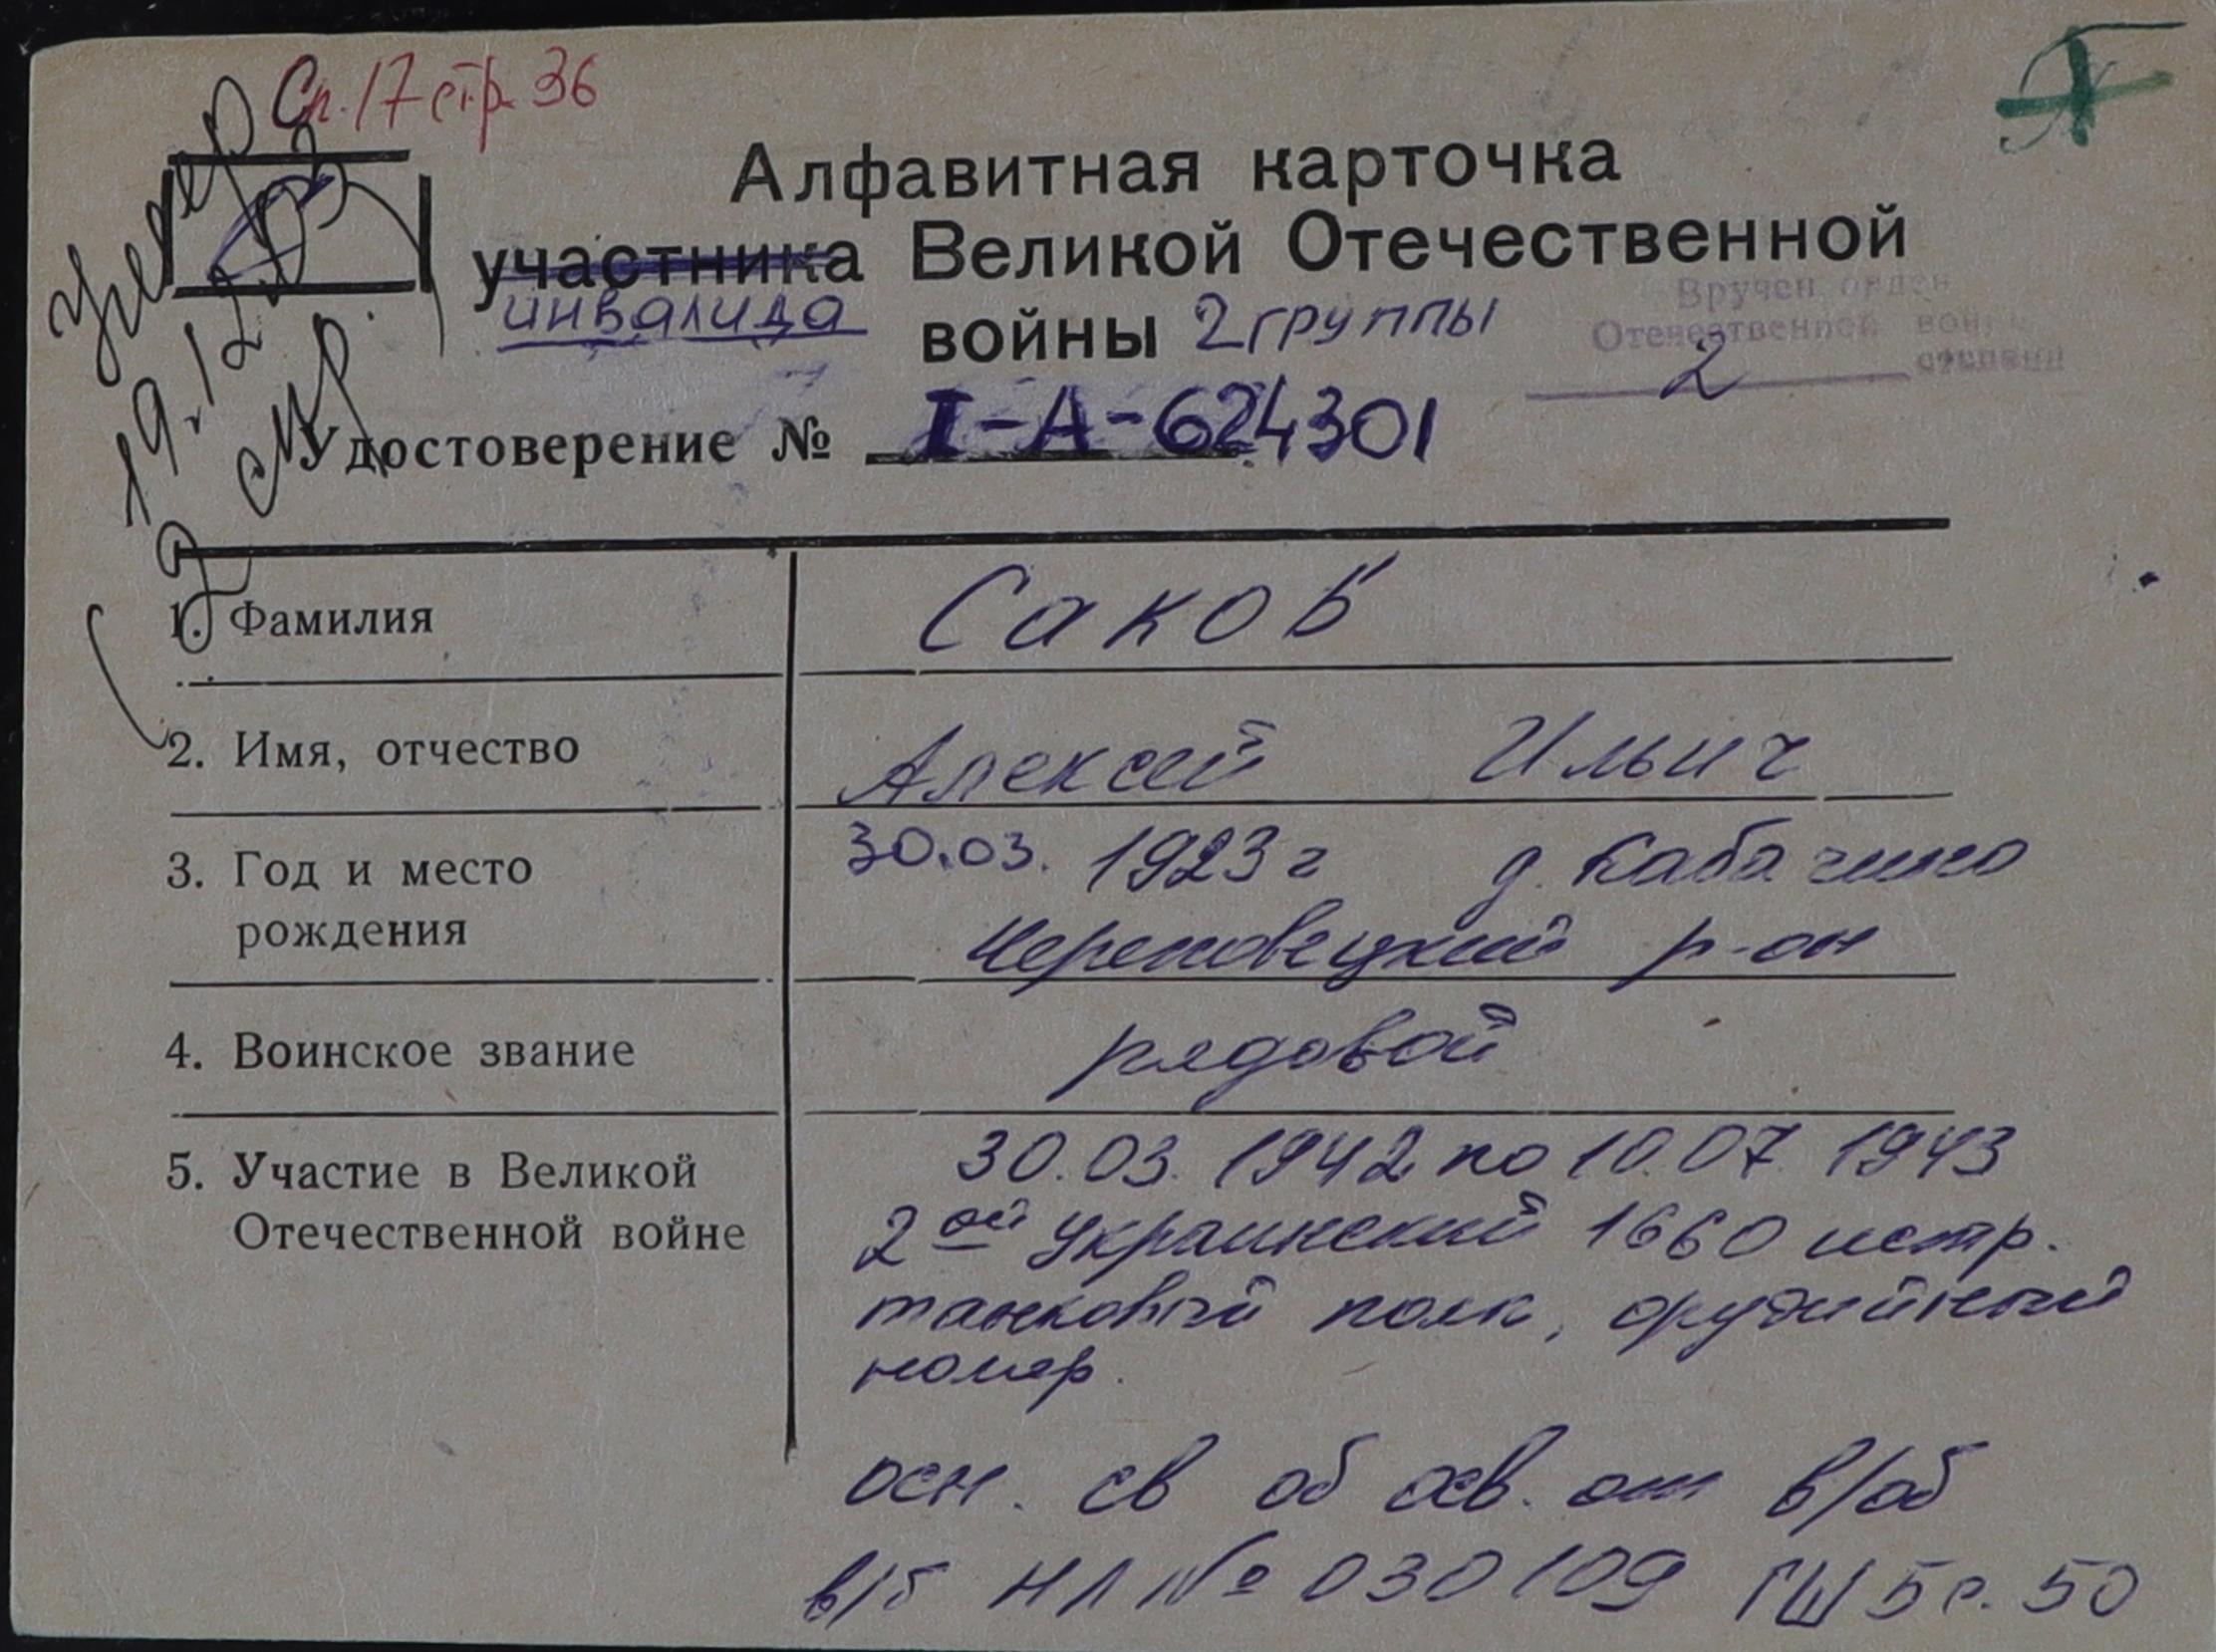 Сп. 17 стр. 36
умер
19.12.
Алфавитная карточка
участника Великой Отечественной
инвалида войны 2 группы
Вручен орден
Отечественной войны
2 степени
Удостоверение № I-А-624301
1. Фамилия Саков
2. Имя, отчество Алексей Ильич
3. Год и место 30.03. 1923 г д. Кабачино
рождения Череповецкий р-он
4. Воинское звание рядовой
5. Участие в Великой 30.03. 1942 по 10.07. 1943
Отечественной войне 2ой Украинский 1660 истр.
танковый полк, орудийный
номер.
осн. св об осв. от в/об
в/б НЛ № 030109 ГШ 5 с. 50